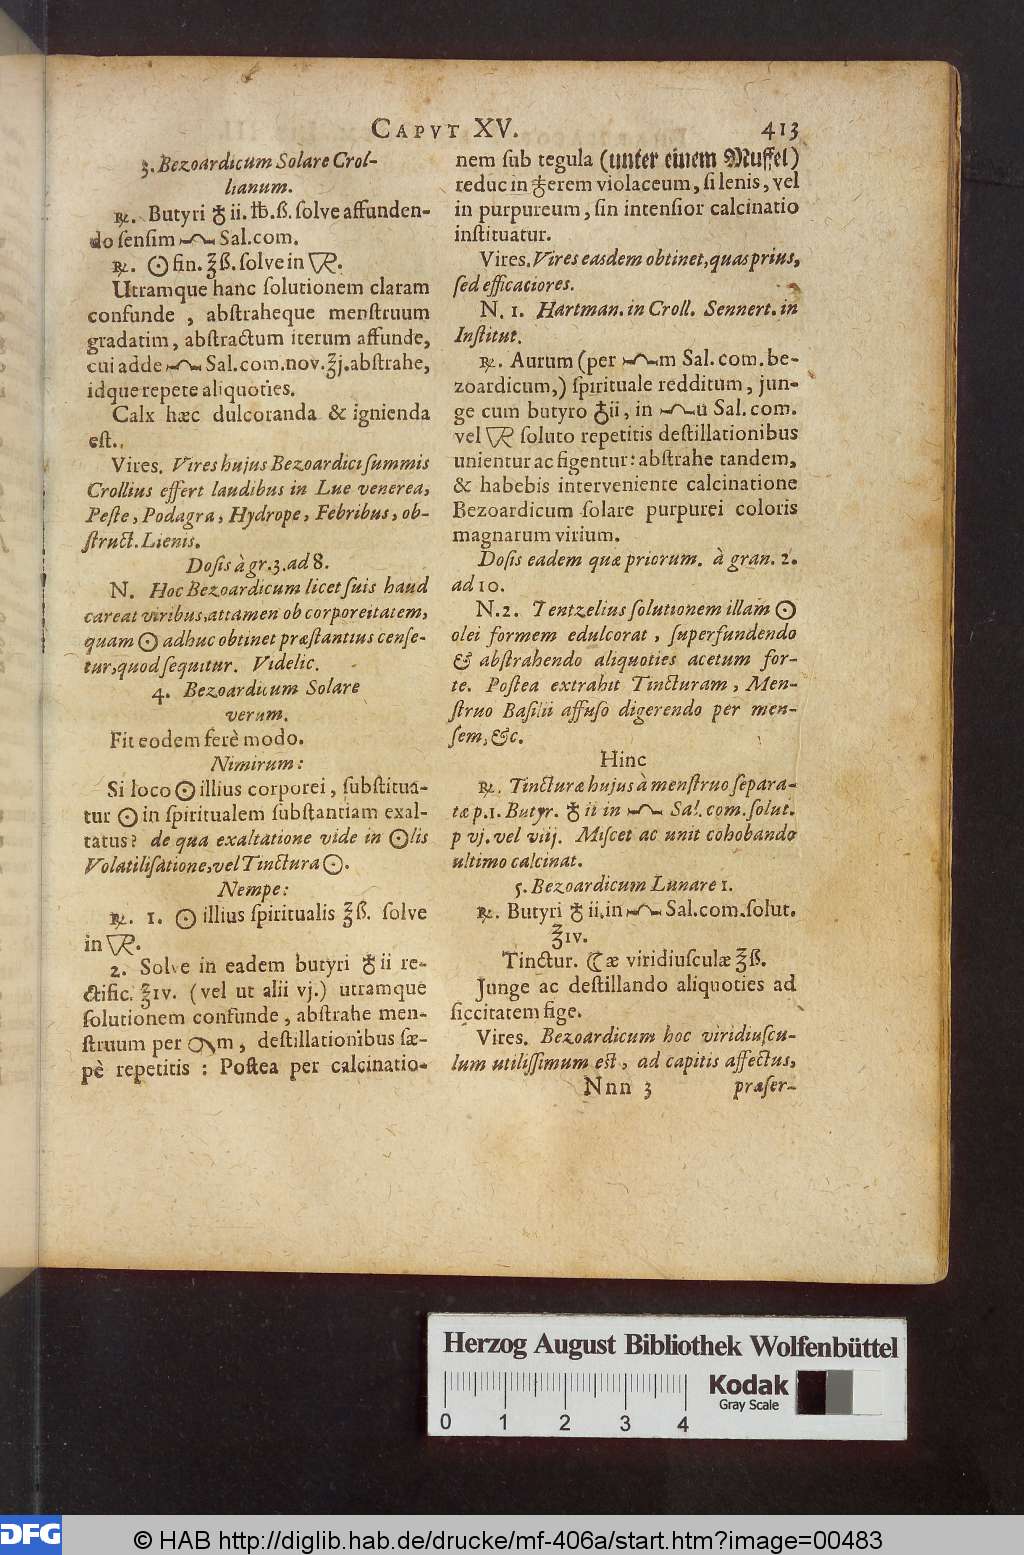 CAPVT XV. 413
3. Bezoardicum Solare Crol-
lianum.
℞. Butyri ♁ ii. ℔. ß. solve affunden-
do sensim Sal. com.
℞. ☉ fin. ℥ß. solve in 🜆.
Utramque hanc solutionem claram
confunde, abstraheque menstruum
gradatim, abstractum iterum affunde,
cui adde Sal. com. nov. ℥j. abstrahe,
idque repete aliquoties.
Calx hæc dulcoranda & ignienda
est.
Vires. Vires hujus Bezoardici summis
Crollius effert laudibus in Lue venerea,
Peste, Podagra, Hydrope, Febribus, ob-
struct. Lienis.
Dosis à gr. 3. ad 8.
N. Hoc Bezoardicum licet suis haud
careat viribus, attamen ob corporeitatem,
quam ☉ adhuc obtinet præstantius cense-
tur, quod sequitur. Videlic.
4. Bezoardicum Solare
verum.
Fit eodem ferè modo.
Nimirum:
Si loco ☉ illius corporei, substitua-
tur ☉ in spiritualem substantiam exal-
tatus? de qua exaltatione vide in ☉lis
Volatilisatione, vel Tinctura ☉.
Nempe:
℞. 1. ☉ illius spiritualis ℥ß. solve
in 🜆.
2. Solve in eadem butyri ♁ ii re-
ctific. ℥iv. (vel ut alii vj.) utramque
solutionem confunde, abstrahe men-
struum per m, destillationibus sæ-
pè repetitis : Postea per calcinatio-
nem sub tegula (unter einem Muffel)
reduc in ♁erem violaceum, si lenis, vel
in purpureum, sin intensior calcinatio
instituatur.
Vires. Vires easdem obtinet, quas prius,
sed efficaciores.
N. 1. Hartman. in Croll. Sennert. in
Institut.
℞. Aurum (per m Sal. com. be-
zoardicum,) spirituale redditum, jun-
ge cum butyro ♁ii, in ū Sal. com.
vel 🜆 soluto repetitis destillationibus
unientur ac figentur: abstrahe tandem,
& habebis interveniente calcinatione
Bezoardicum solare purpurei coloris
magnarum virium.
Dosis eadem quæ priorum. à gran. 2.
ad 10.
N. 2. Tentzelius solutionem illam ☉
olei formem edulcorat, superfundendo
& abstrahendo aliquoties acetum for-
te. Postea extrahit Tincturam, Men-
struo Basilii affuso digerendo per men-
sem, &c.
Hinc
℞. Tincturæ hujus à menstruo separa-
tæ p. 1. Butyr. ♁ ii in Sal. com. solut.
p vj. vel viij. Miscet ac unit cohobando
ultimo calcinat.
5. Bezoardicum Lunare 1.
℞. Butyri ♁ ii, in Sal. com. solut.
℥iv.
Tinctur. ☾æ viridiusculæ ℥ß.
Junge ac destillando aliquoties ad
siccitatem fige.
Vires. Bezoardicum hoc viridiuscu-
lum utilissimum est, ad capitis affectus,
Nnn 3 præser-
Herzog August Bibliothek Wolfenbüttel
Kodak
Gray Scale
0 1 2 3 4
DFG
© HAB http://diglib.hab.de/drucke/mf-406a/start.htm?image=00483